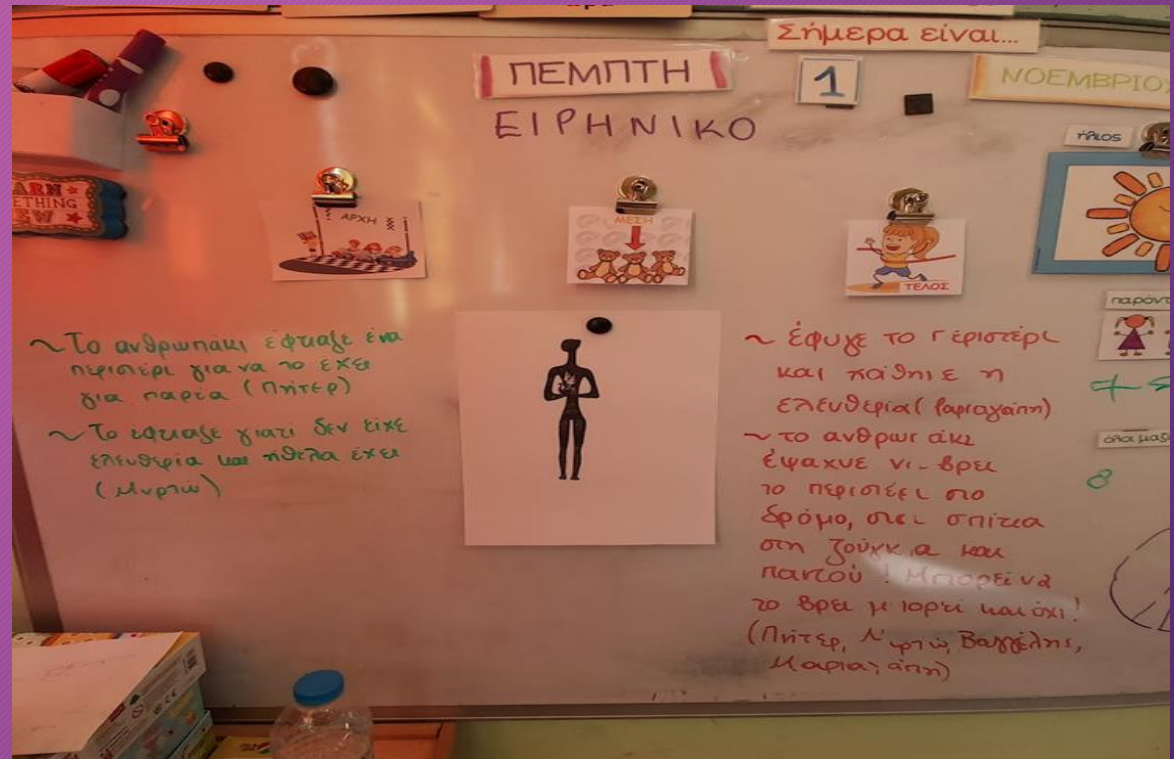 Σήμερα είναι...
ΠΕΜΠΤΗ
1
ΝΟΕΜΒΡΙΟΥ
ΕΙΡΗΝΙΚΟ
ήλιος
ΑΡΧΗ
ΜΕΣΗ
ΤΕΛΟΣ
~ Το ανθρωπάκι έφτιαξε ένα
περιστέρι για να το έχει
για παρέα (Πήτερ)
~ Το έφτιαξε γιατί δεν είχε
ελευθερία και ήθελα έχει
(Μυρτώ)
~ έφυγε το περιστέρι
και χάθηκε η
ελευθερία
~ το ανθρωπάκι
έψαχνε να βρει
το περιστέρι στο
δρόμο, στα σπίτια
στη ζούγκλα και
παντού! Μπορεί να
το βρει μπορεί και όχι!
(Πήτερ, Μυρτώ, Βαγγέλης,
Μαριαγάπη)
όλοι μαζί
8